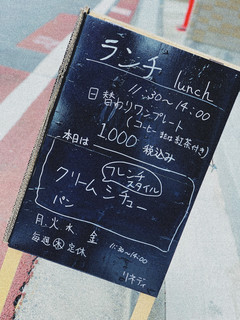 ランチ lunch
11:30〜14:00
日替わりワンプレート
(コーヒーまたは紅茶付き)
本日は 1,000 税込み
フレンチ
スタイル
クリームシチュー
パン
月、火 水 金
11:30〜14:00
毎週 木 定休
リネディ